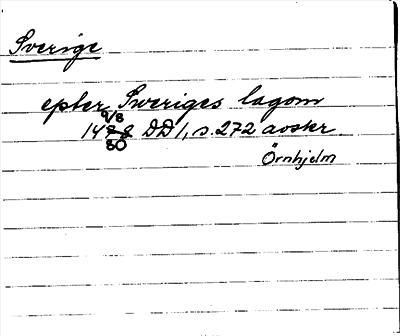 Sverige
epter Sweriges lagom
9/8
1480 DD 1, s. 272 avskr
Örnhjelm